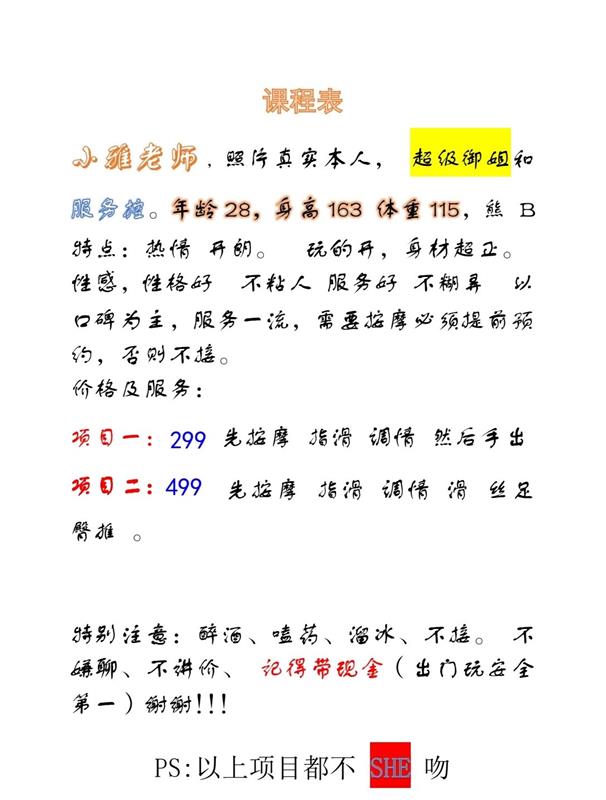 课程表
小雅老师，照片真实本人， 超级御姐和
服务控。年龄28，身高163 体重115，熊 B
特点：热情 开朗。 玩的开，身材超正。
性感，性格好 不粘人 服务好 不糊弄 以
口碑为主，服务一流，需要按摩必须提前预
约，否则不接。
价格及服务：
项目一：299 先按摩 指滑 调情 然后手出
项目二：499 先按摩 指滑 调情 滑 丝足
臀推 。
特别注意：醉酒、嗑药、溜冰、不接。 不
嫌聊、不讲价、 记得带现金（出门玩安全
第一）谢谢!!!
PS:以上项目都不 SHE 吻